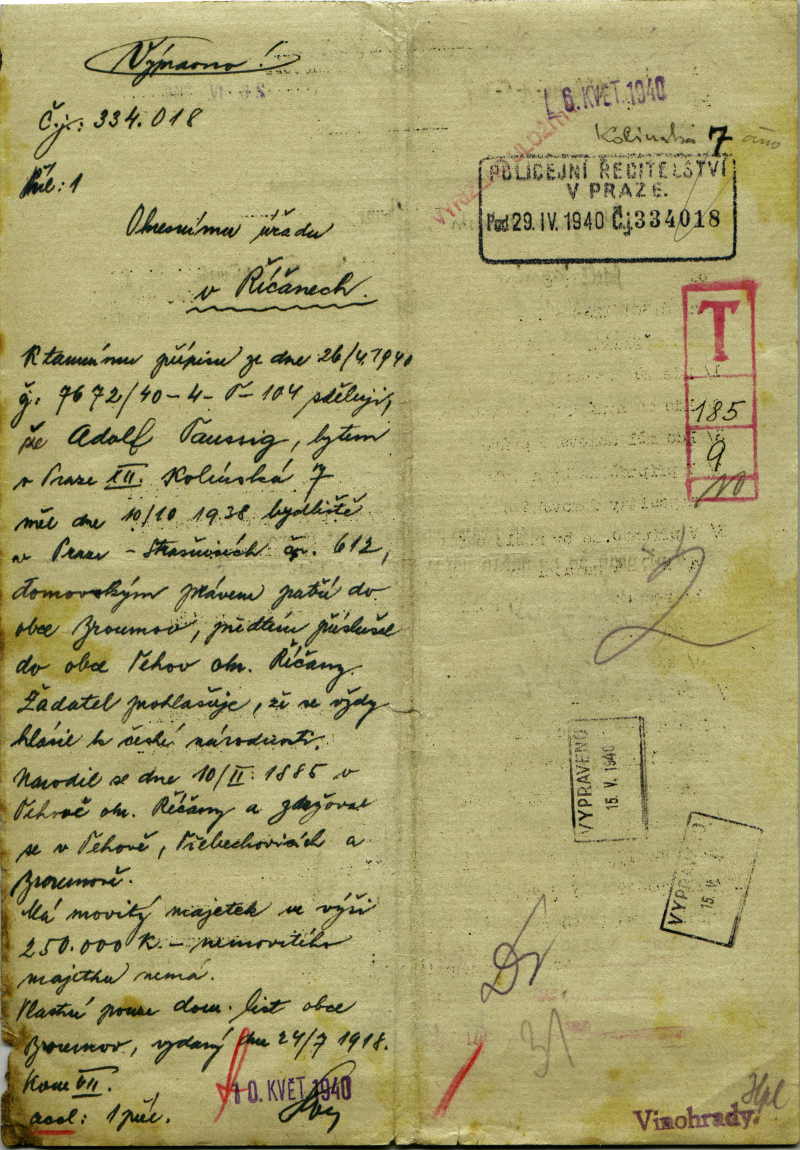 Výpravno!
Č.j.: 334.018
Příl: 1
Okresnímu úřadu
v Říčanech.
K tamnímu přípisu ze dne 26/4. 1940
čj. 7672/40-4-T-104 sděluji,
že Adolf Taussig, bytem
v Praze XII. Kolínská 7
měl dne 10/10 1938 bydliště
v Praze - Strašnicích čp. 612,
domovským právem patří do
obce Broumov, předtím příslušel
do obce Tehov okr. Říčany.
Žadatel prohlašuje, že se vždy
hlásil k české národnosti.
Narodil se dne 10/II. 1885 v
Tehově okr. Říčany a zdržoval
se v Tehově, Třebechovicích a
Broumově.
Má movitý majetek ve výši
250.000 K.- nemovitého
majetku nemá.
Vlastní pouze dom. list obce
Broumov, vydaný dne 24/7 1918.
Kom VII.
accl: 1 příl.
10. KVĚT. 1940
6. KVĚT. 1940
Kolínská 7
POLICEJNÍ ŘEDITELSTVÍ
V PRAZE.
Pod 29. IV. 1940 Čj 334018
T
185
9
VYPRAVENO
15. V. 1940
15. V.
Dr
Vinohrady.